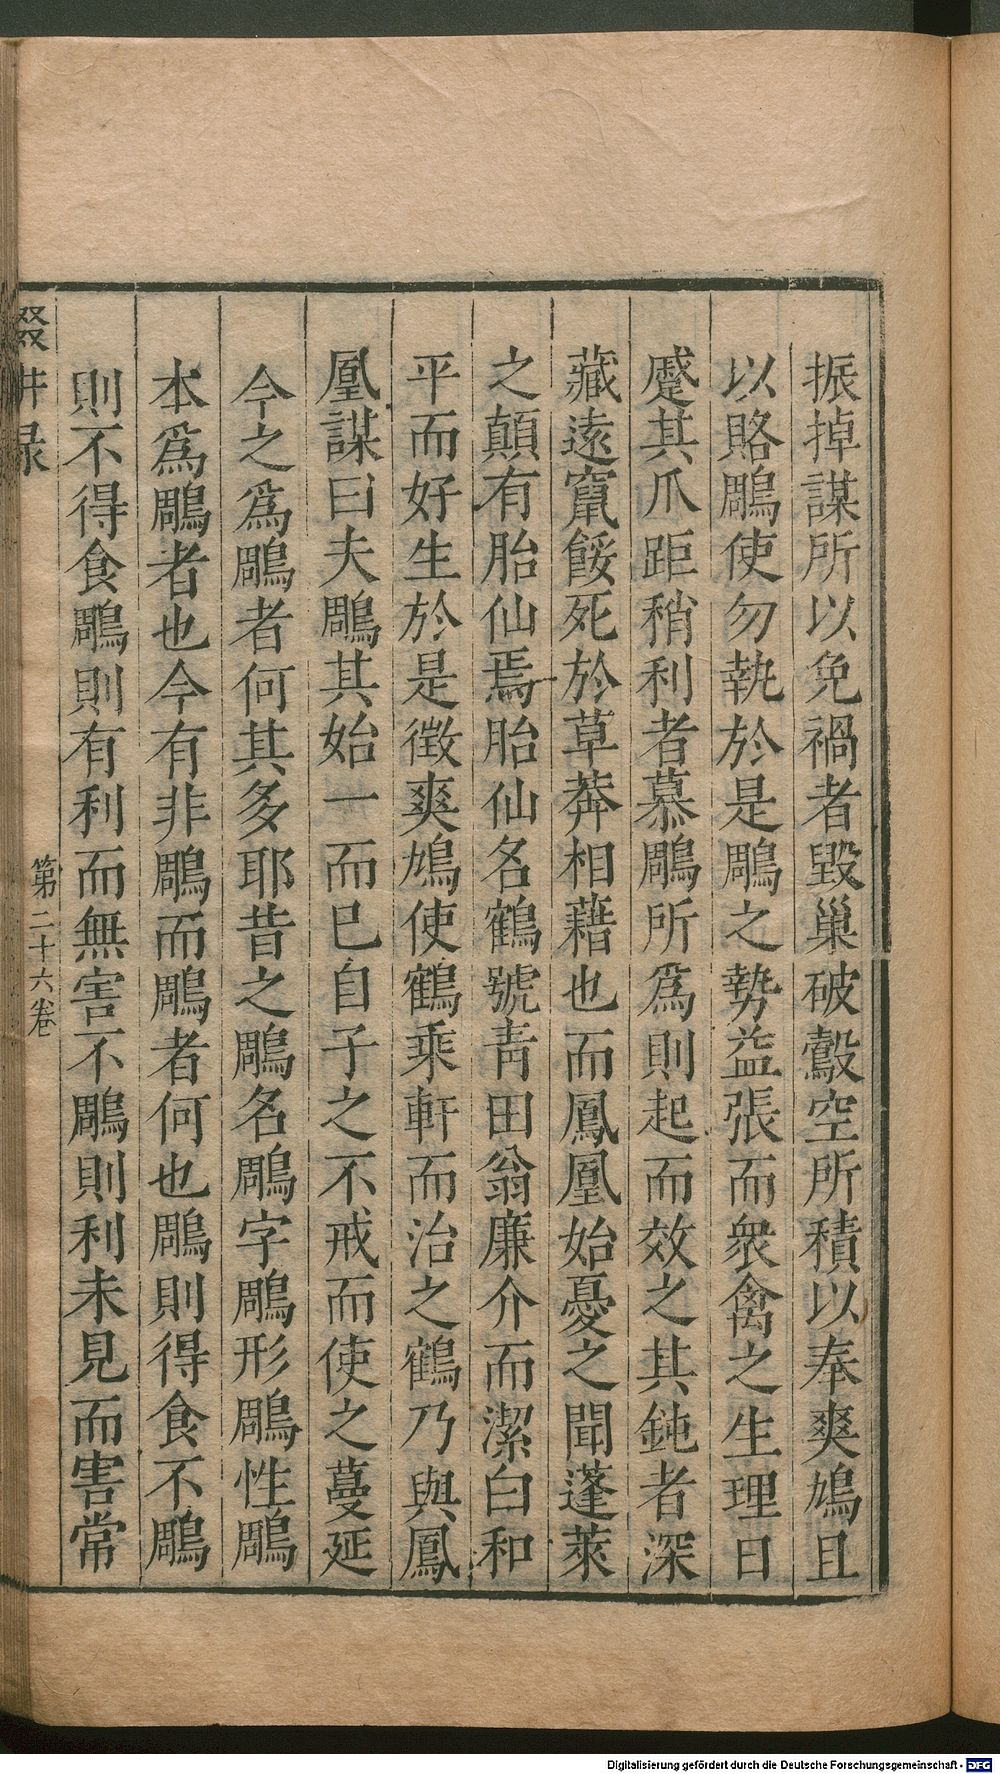 振掉謀所以免禍者毀巢破鷇空所積以奉爽鳩且
以賂鵰使勿執於是鵰之勢益張而衆禽之生理日
蹙其爪距稍利者慕鵰所爲則起而效之其鈍者深
藏遠竄餒死於草莽相藉也而鳳凰始憂之聞蓬萊
之顛有胎仙焉胎仙名鶴號靑田翁廉介而潔白和
平而好生於是徵爽鳩使鶴乘軒而治之鶴乃與鳳
凰謀曰夫鵰其始一而已自子之不戒而使之蔓延
今之爲鵰者何其多耶昔之鵰名鵰字鵰形鵰性鵰
本爲鵰者也今有非鵰而鵰者何也鵰則得食不鵰
則不得食鵰則有利而無害不鵰則利未見而害常
第二十六卷
Digitalisierung gefördert durch die Deutsche Forschungsgemeinschaft - DFG